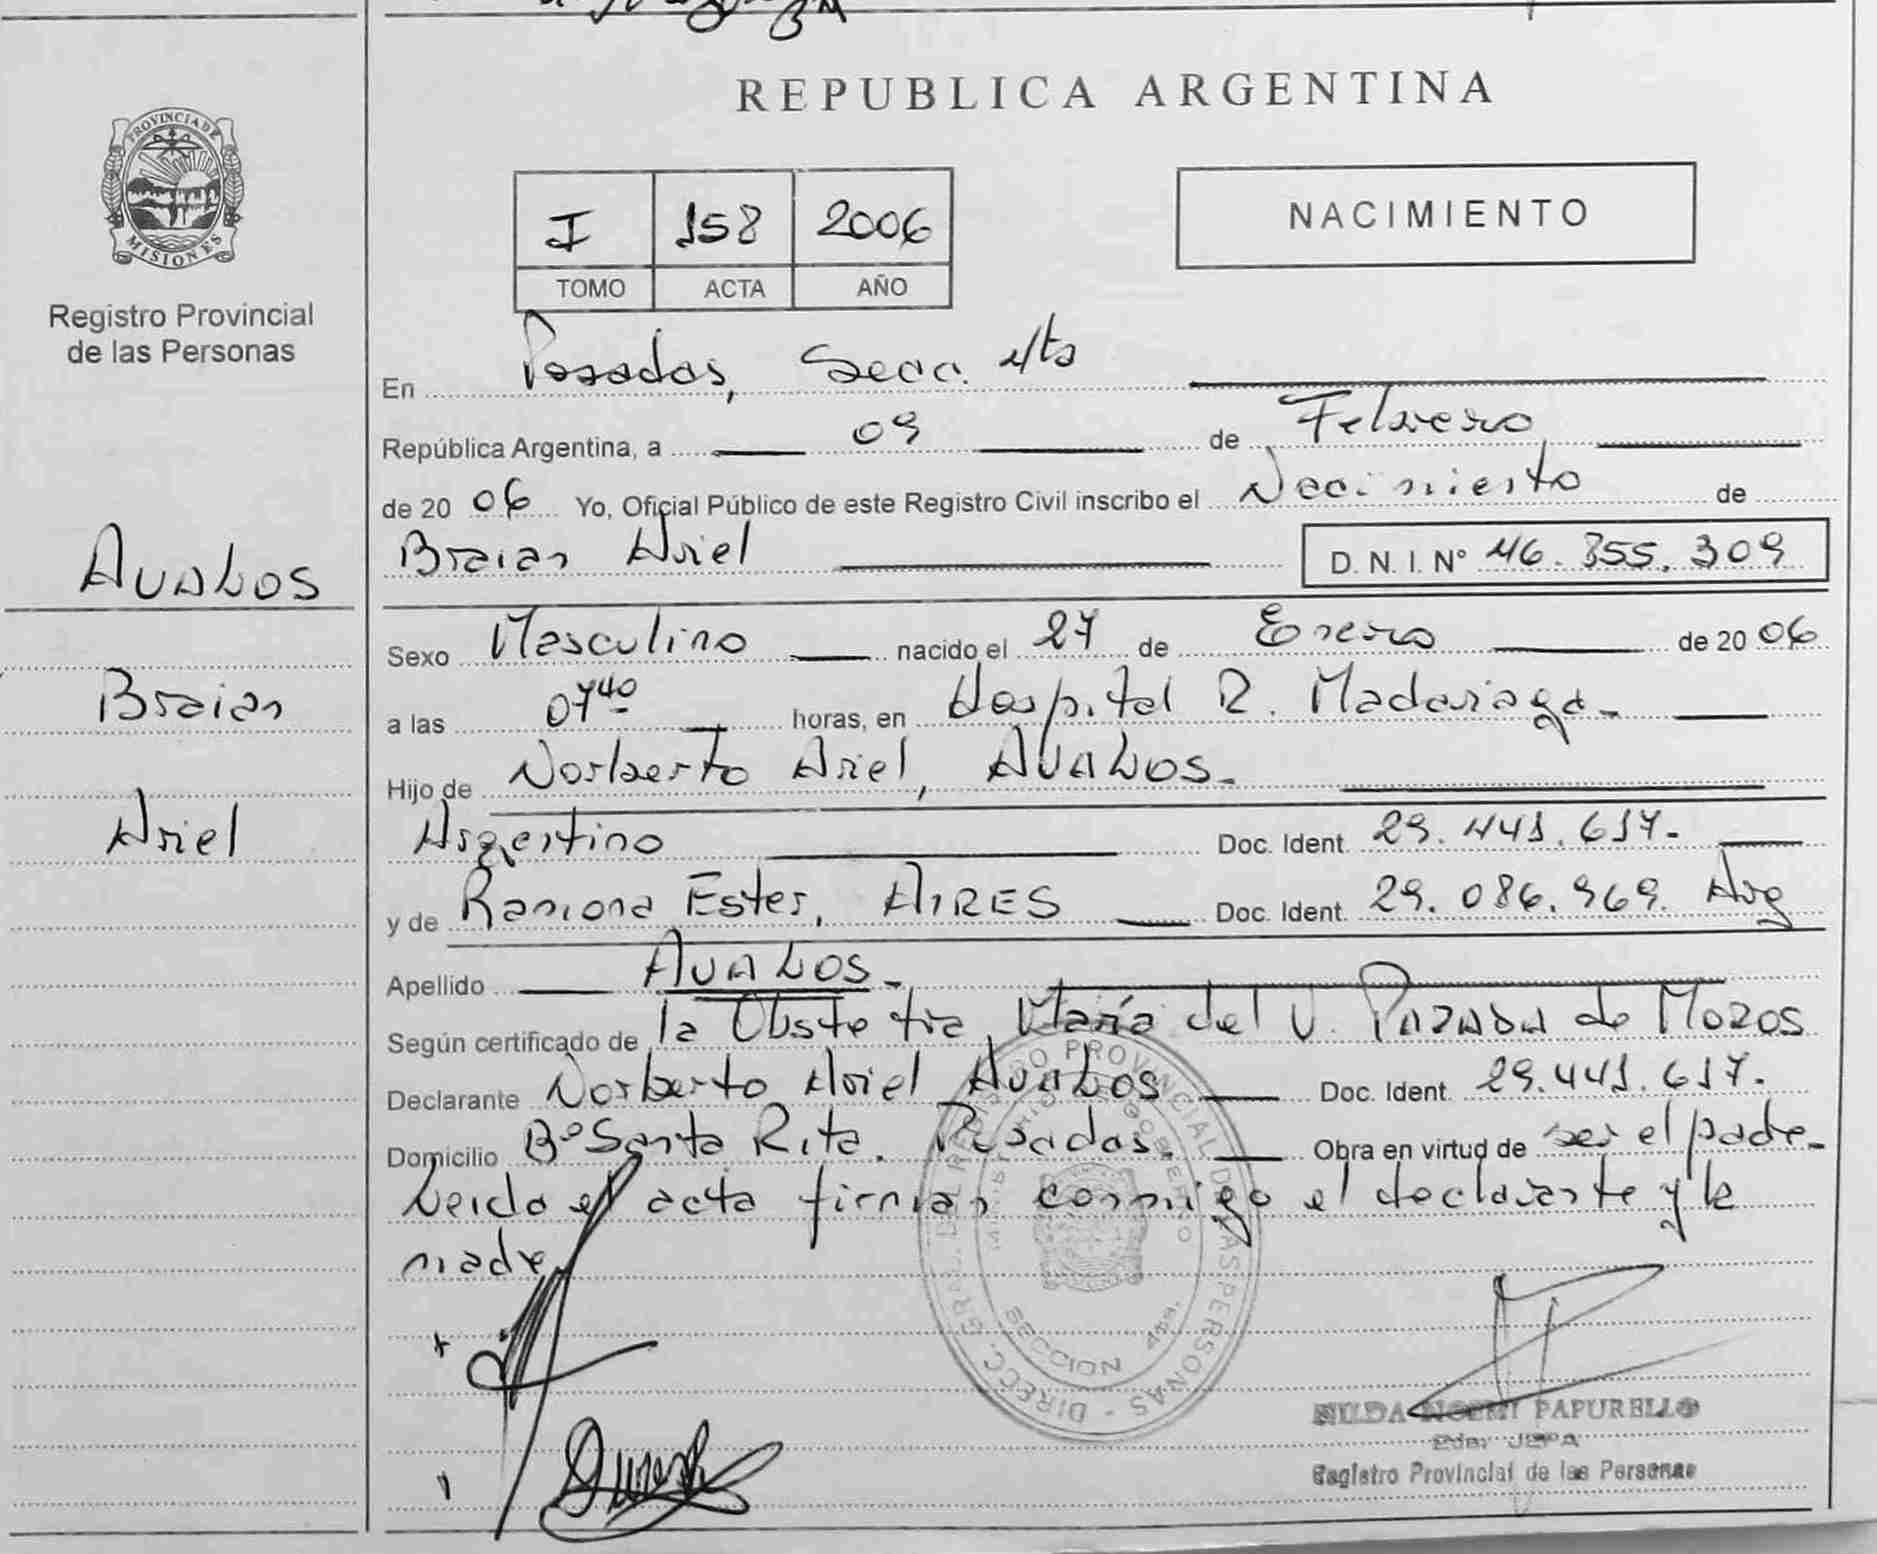 REPUBLICA ARGENTINA
PROVINCIA DE
MISIONES
Registro Provincial
de las Personas
I 158 2006
TOMO ACTA AÑO
NACIMIENTO
En Posadas, Secc. 4ta
República Argentina, a 09 de Febrero
de 20 06 Yo, Oficial Público de este Registro Civil inscribo el Nacimiento de
Braian Ariel D. N. I. Nº 46.355.309
AVALOS
Braian
Ariel
Sexo Masculino nacido el 27 de Enero de 20 06
a las 07 40 horas, en Hospital R. Madariaga.
Hijo de Norberto Ariel, AVALOS.
Argentino Doc. Ident. 29.441.617.
y de Ramona Ester, AIRES Doc. Ident. 29.086.969. Arg
Apellido AVALOS.
Según certificado de la Obstetra, María del V. de Mozos
Declarante Norberto Ariel AVALOS Doc. Ident. 29.441.617.
Domicilio Bº Santa Rita. Posadas. Obra en virtud de ser el padre.
Leido el acta firman conmigo el declarante y la
madre
DIRECC. GRAL. DEL REGISTRO PROVINCIAL DE LAS PERSONAS
MINISTERIO DE GOBIERNO
SECCION 4ta.
NILDA NOEMI PAPURELLO
JEFA
Registro Provincial de las Personas